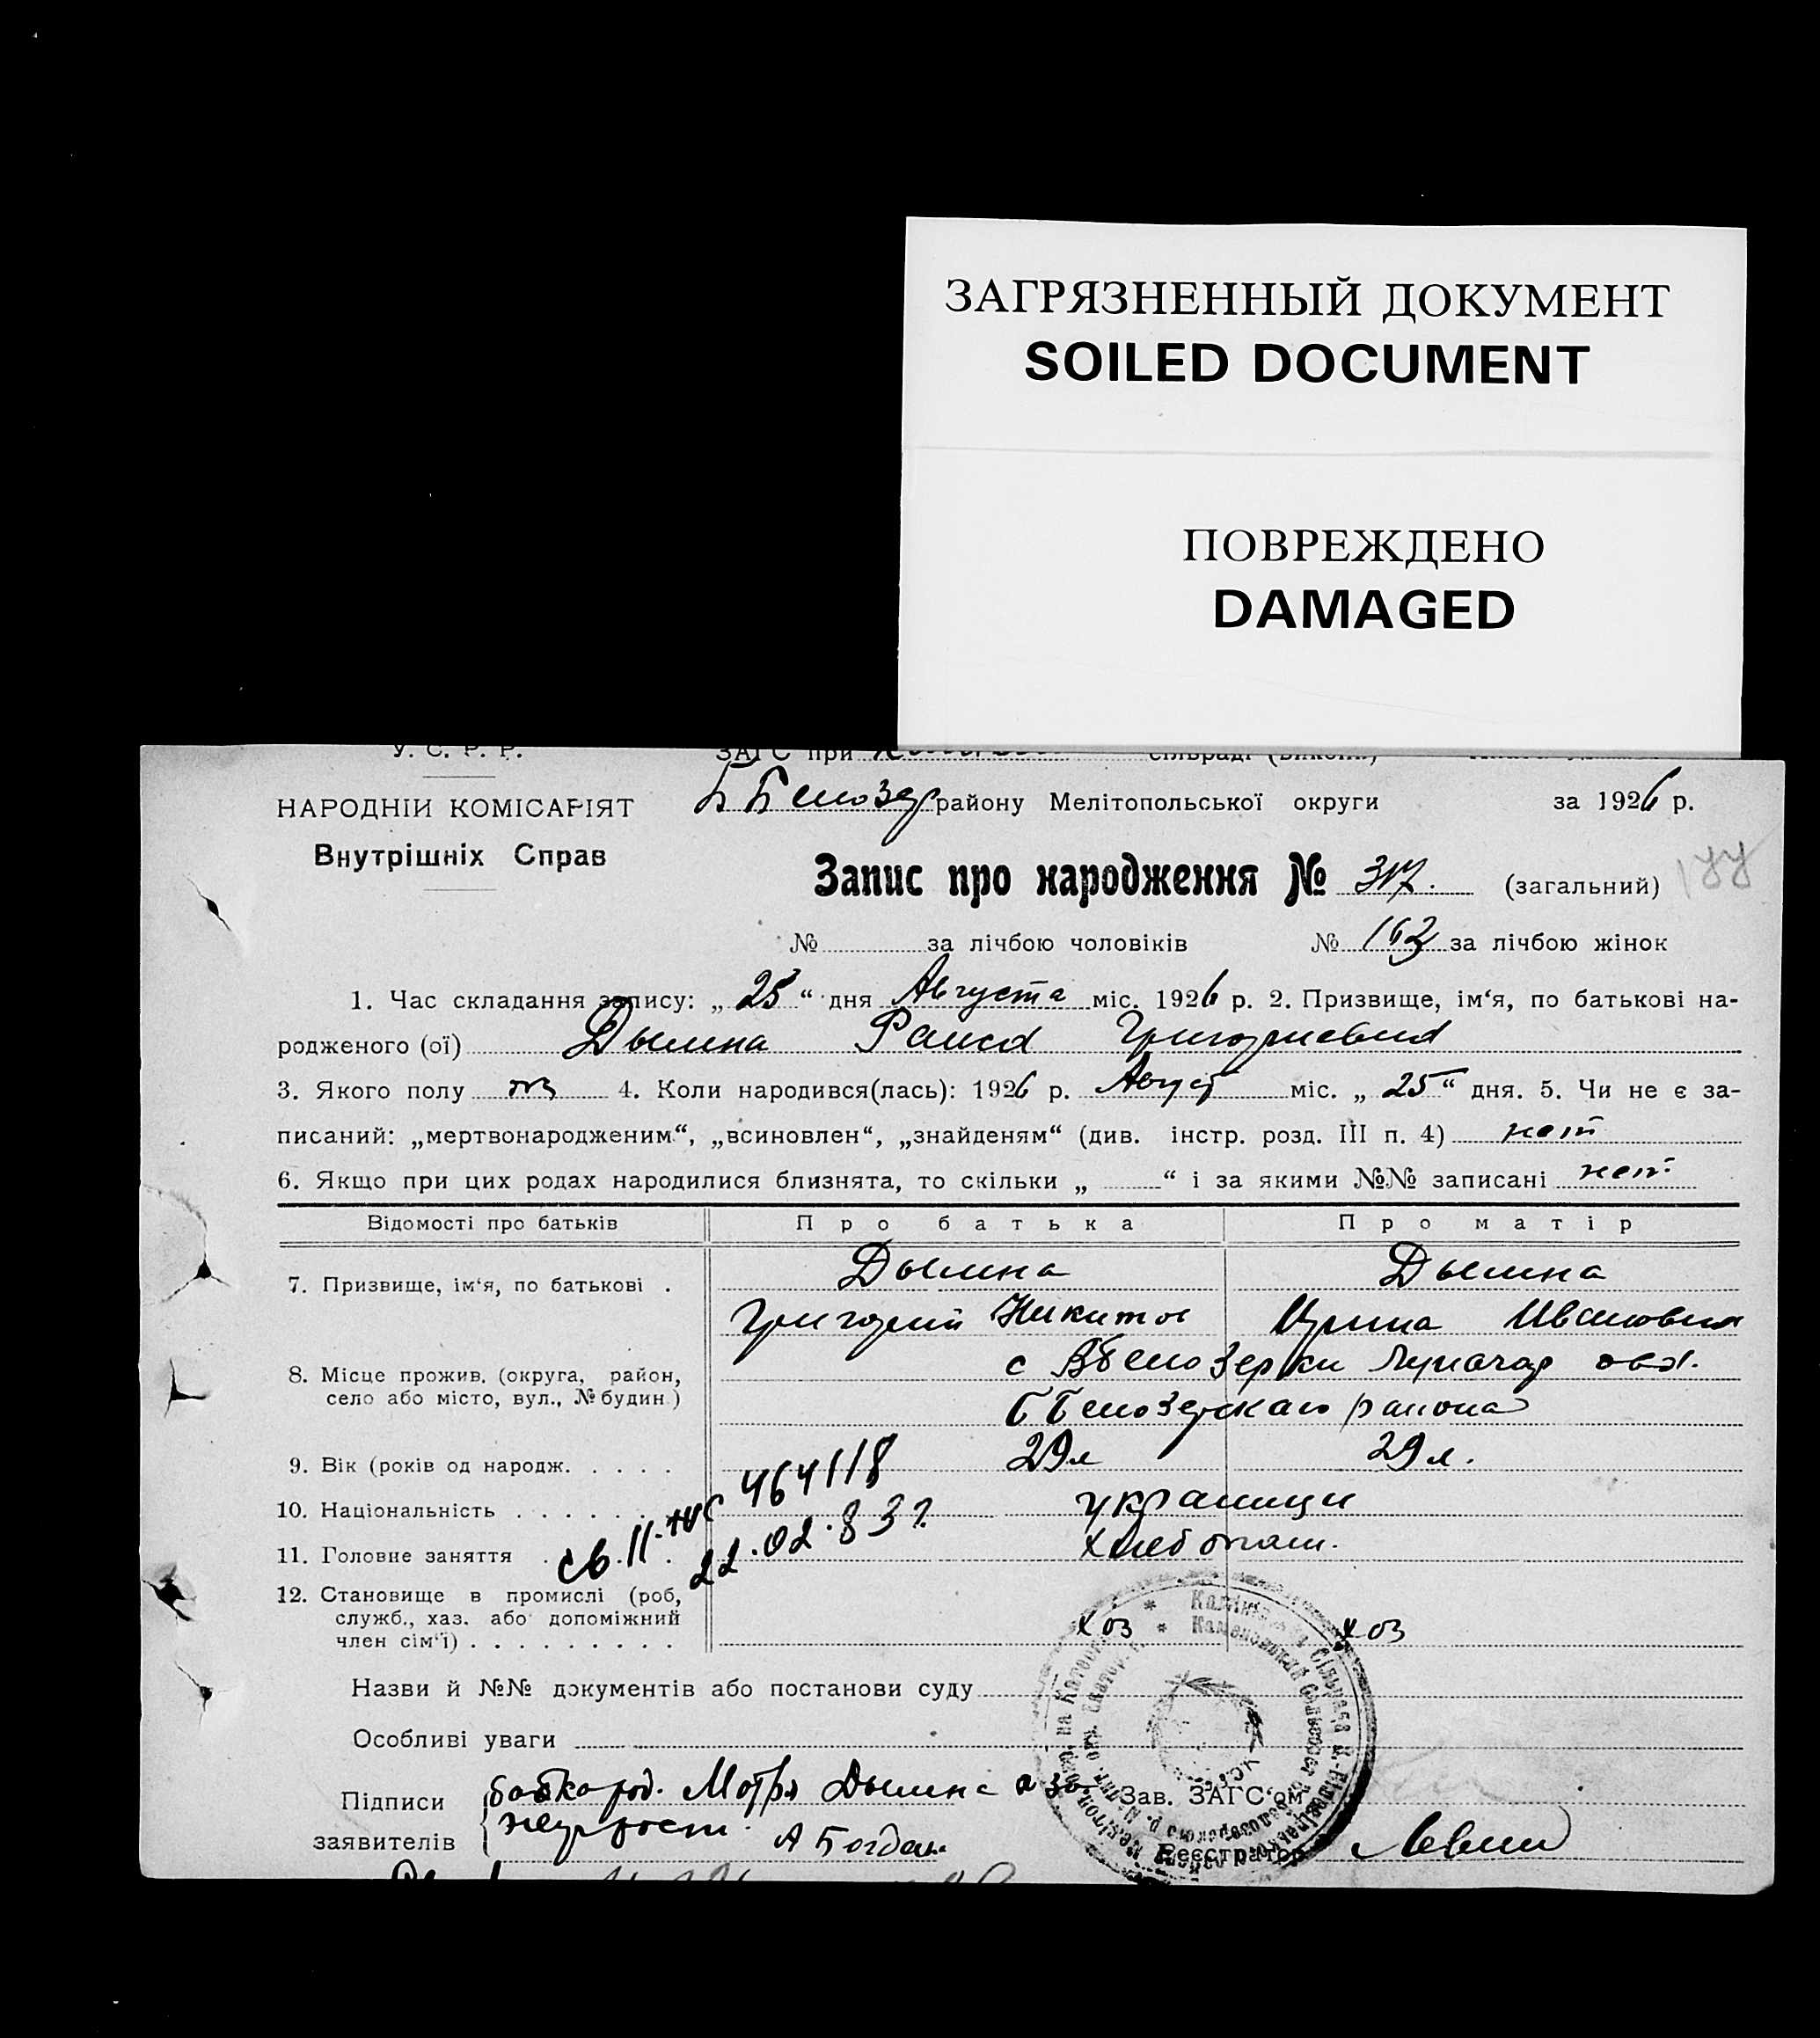 ЗАГРЯЗНЕННЫЙ ДОКУМЕНТ
SOILED DOCUMENT
ПОВРЕЖДЕНО
DAMAGED
У. С. Р. Р. ЗАГС при сільраді
НАРОДНІЙ КОМІСАРІЯТ
Б Белозер району Мелітопольської округи за 1926 р.
Внутрішніх Справ
Запис про народження № 317. (загальний)
177
№ за лічбою чоловіків № 162 за лічбою жінок
1. Час складання запису: „ 25 “ дня Августа міс. 1926 р. 2. Призвище, ім‘я, по батькові на-
родженого (ої) Дымна Раиса Григориевна
3. Якого полу ж 4. Коли народився(лась): 1926 р. Август міс. „ 25 “ дня. 5. Чи не є за-
писаний: „мертвонародженим“, „всиновлен“, „знайденям“ (див. інстр. розд. III п. 4) нет
6. Якщо при цих родах народилися близнята, то скільки „ “ і за якими №№ записані нет
Відомості про батьків Про батька Про матір
7. Призвище, ім‘я, по батькові . Дымна Дымна
Григорий Никитов Ирина Ивановна
8. Місце прожив. (округа, район, с ББелозерки
село або місто, вул., № будин.) ББелозерскаго района
9. Вік (років од народж. . . . . 29 л 29 л.
464118
10. Національність . . . . . . украинци
св. II-ЖС 22.02.83 г.
11. Головне заняття . . . Хлебопаш.
12. Становище в промислі (роб,
служб., хаз. або допоміжний
член сім‘ї) . . . . . . . . . Хоз Хоз
Назви й №№ документів або постанови суду
Особливі уваги
Підписи бабка род. Мотря Дымна а за Зав. ЗАГС‘ом
заявителів неграмотн. А Богдан Реєстратор